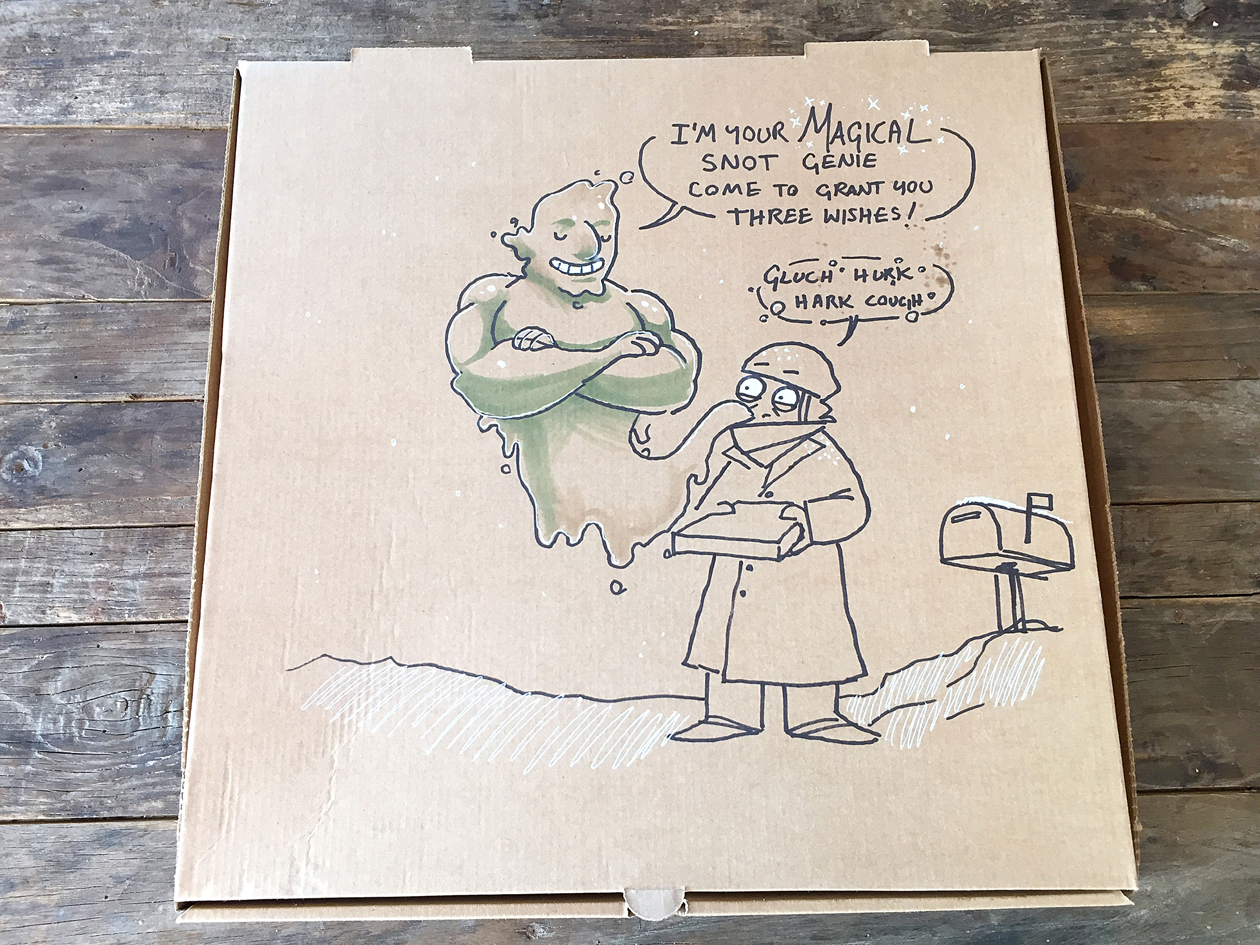 I'M YOUR MAGICAL
SNOT GENIE
COME TO GRANT YOU
THREE WISHES!
GLUCH HURK
HARK COUGH